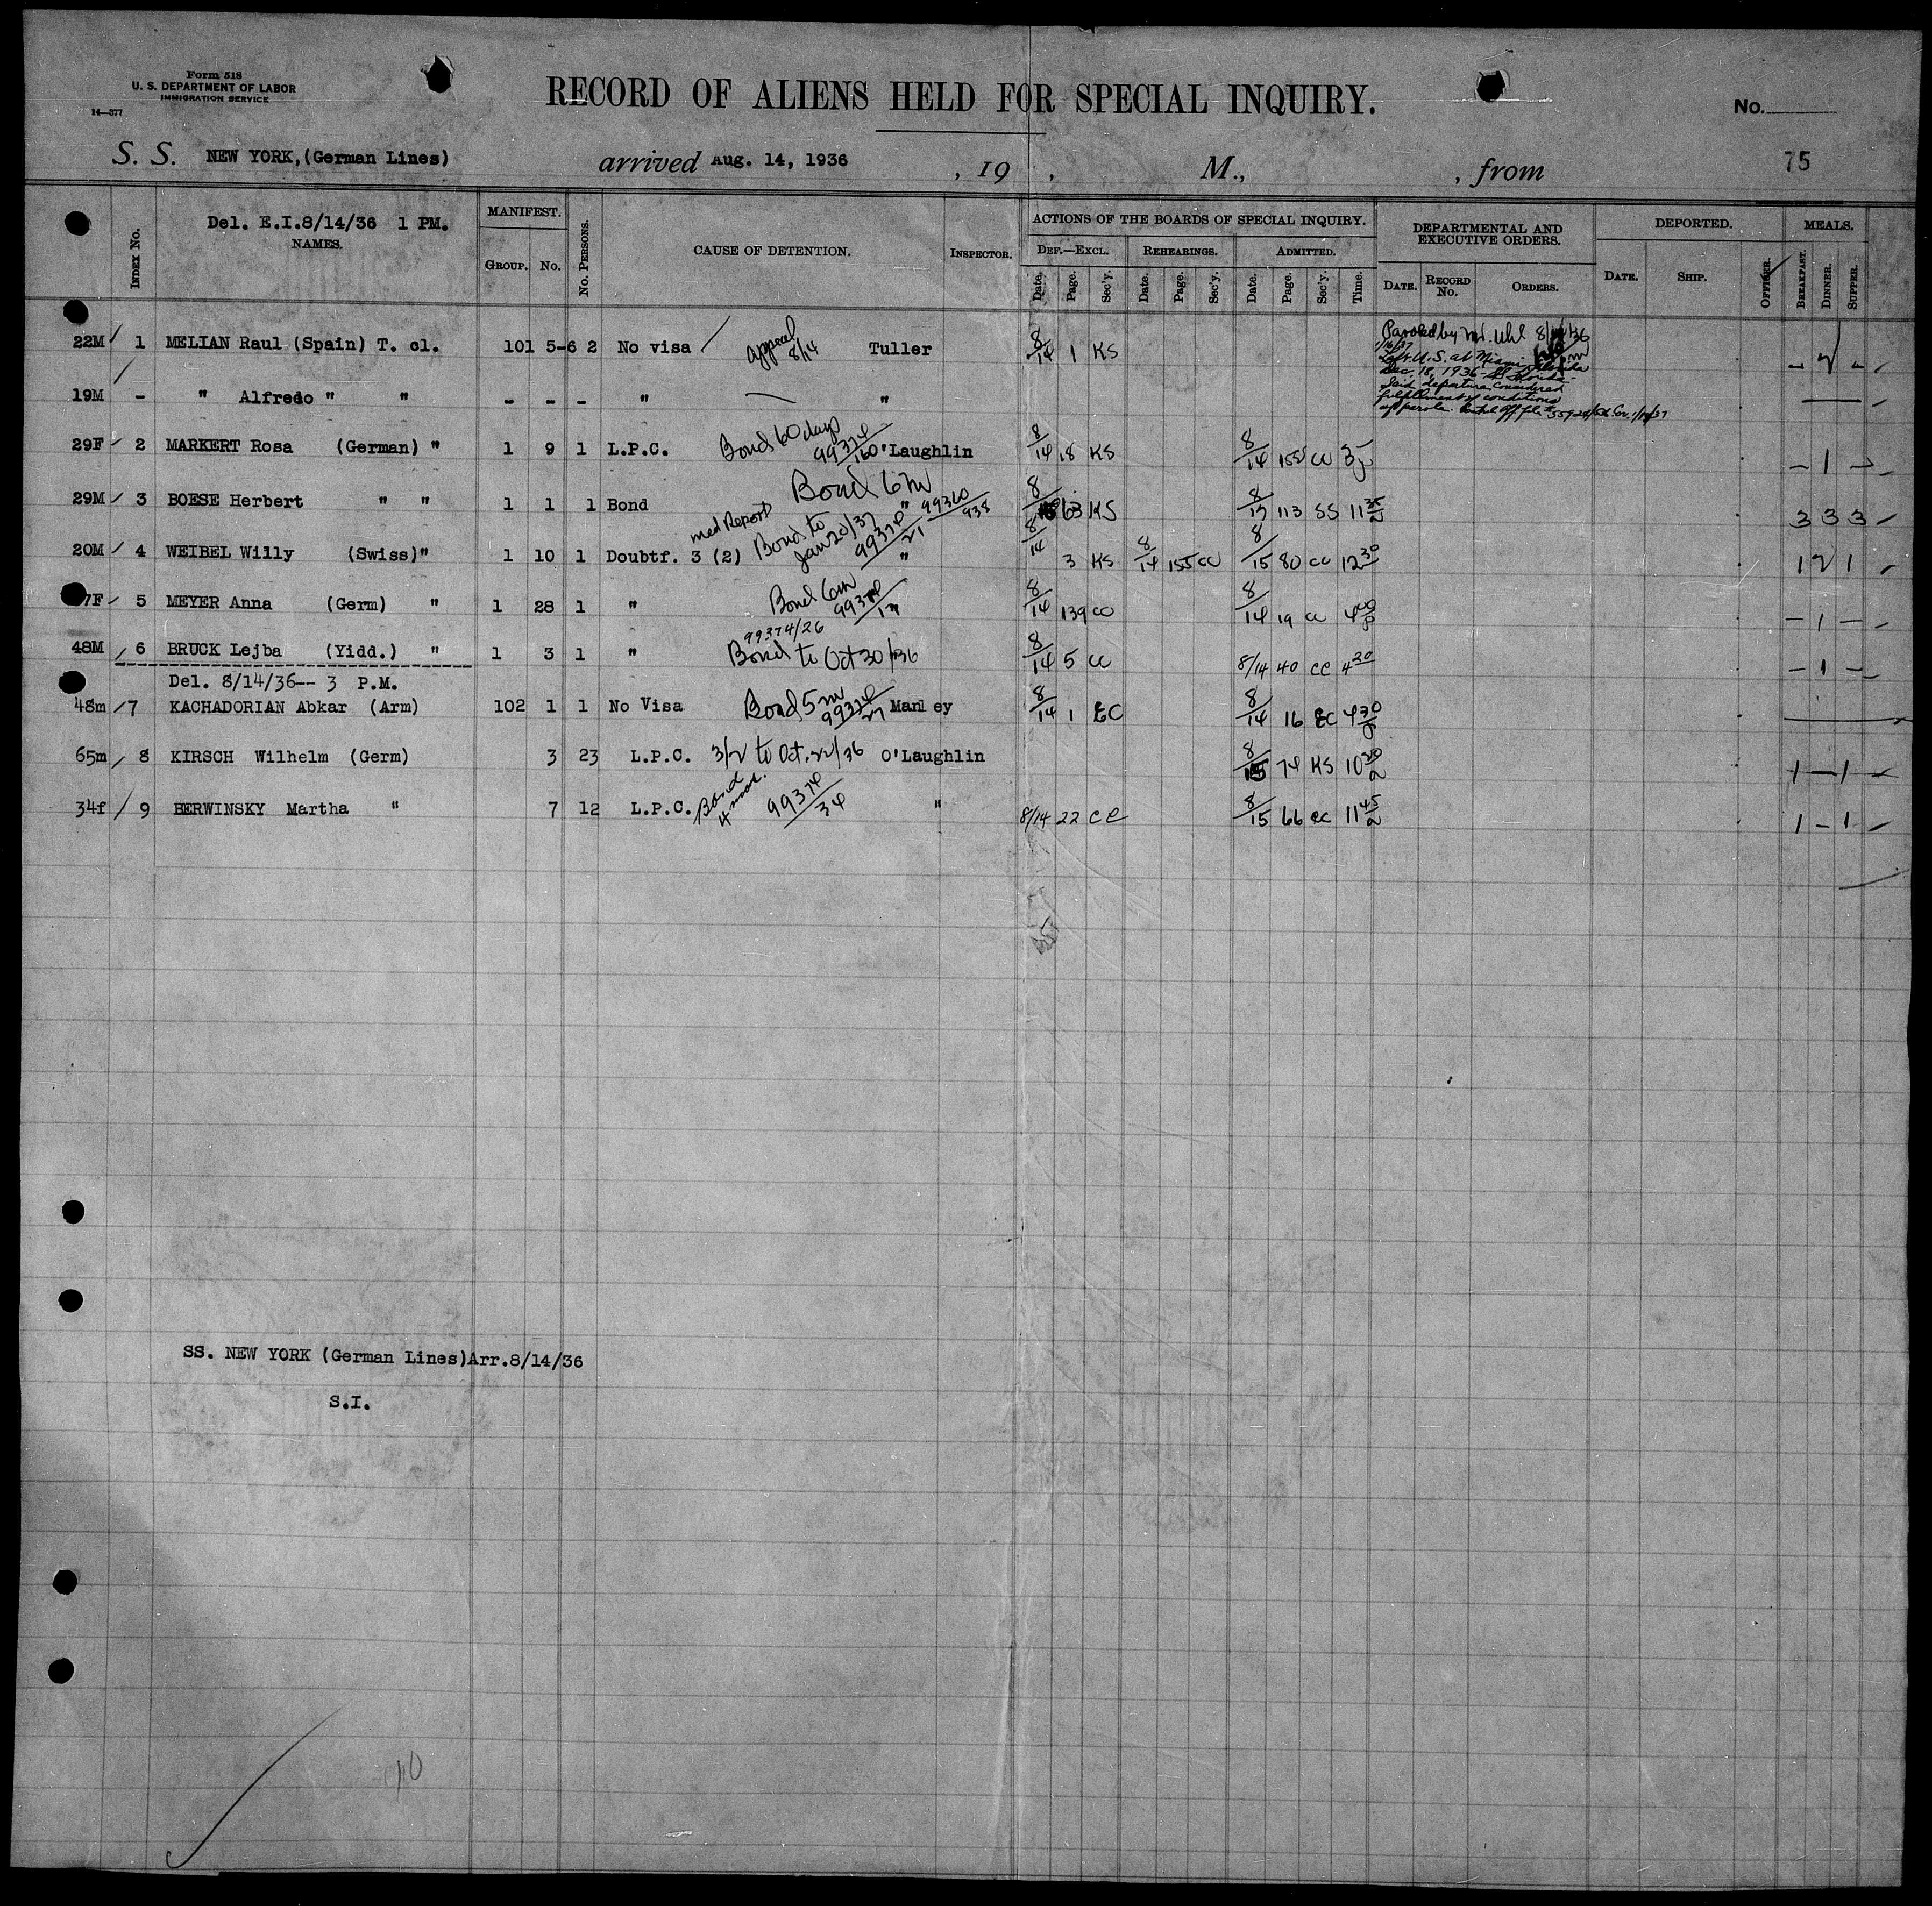 Form 518
U. S. DEPARTMENT OF LABOR
IMMIGRATION SERVICE
14—377
RECORD OF ALIENS HELD FOR SPECIAL INQUIRY.
No.
S. S. NEW YORK, (German Lines) arrived Aug. 14, 1936 , 19 , M., , from 75
Del. E.I.8/14/36 1 PM.
INDEX No. NAMES. MANIFEST. GROUP. No. No. PERSONS. CAUSE OF DETENTION. INSPECTOR.
ACTIONS OF THE BOARDS OF SPECIAL INQUIRY.
DEF.—EXCL. REHEARINGS. ADMITTED.
Date. Page. Sec'y. Date. Page. Sec'y. Date. Page. Sec'y. Time.
DEPARTMENTAL AND EXECUTIVE ORDERS.
DATE. RECORD No. ORDERS.
DEPORTED.
DATE. SHIP. OFFICER.
MEALS.
BREAKFAST. DINNER. SUPPER.
22M 1 MELIAN Raul (Spain) T. cl. 101 5-6 2 No visa appeal 8/14 Tuller 8/14 1 KS
Paroled by Mr. Uhl
1/16/37
Left U.S. at Miami, Florida
Dec. 18, 1936 SS Florida
Said departure considered
fulfillment of conditions
of parole.
19M - " Alfredo " " - - - " "
29F 2 MARKERT Rosa (German) " 1 9 1 L.P.C. Bond 60 days 99374/160 O'Laughlin 8/14 18 KS 8/14 158 CC - 1 -
29M 3 BOESE Herbert " " 1 1 1 Bond Bond 6m " 99360/938 63 KS 8/17 113 SS 11 35 3 3 3
20M 4 WEIBEL Willy (Swiss)" 1 10 1 Doubtf. 3 (2) med Report Bond to Jan 20/37 99374/21 " 8/14 3 KS 8/14 155 CC 8/15 80 CC 12 30 1 2 1
7F 5 MEYER Anna (Germ) " 1 28 1 " Bond 6m 99374/17 " 8/14 139 CC 8/14 19 CC 4 00 - 1 -
48M 6 BRUCK Lejba (Yidd.) " 1 3 1 " 99374/26 Bond to Oct 30/36 8/14 5 CC 8/14 40 CC 4 30 - 1 -
Del. 8/14/36-- 3 P.M.
48m 7 KACHADORIAN Abkar (Arm) 102 1 1 No Visa Bond 5m 99374/27 Manley 8/14 1 EC 8/14 16 EC 4 30
65m 8 KIRSCH Wilhelm (Germ) 3 23 L.P.C. 3/2 to Oct. 22/36 O'Laughlin 8/15 74 KS 10 30 1 - 1
34f 9 BERWINSKY Martha " 7 12 L.P.C. Bond 4 mos. 99374/34 " 8/14 22 CC 8/15 66 EC 11 45 1 - 1
SS. NEW YORK (German Lines)Arr.8/14/36
S.I.